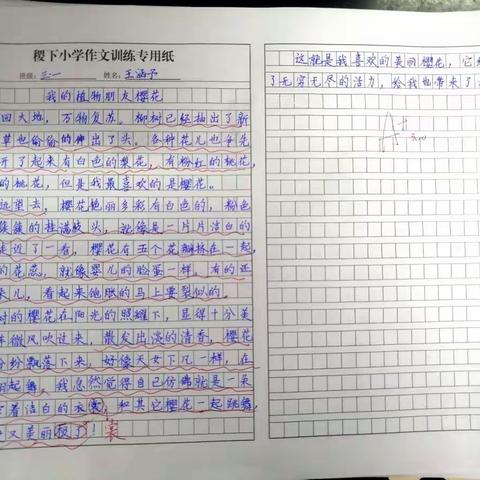 稷下小学作文训练专用纸
班级: 三·一 姓名: 王涵予
我的植物朋友樱花
回大地，万物复苏。柳树已经抽出了新
草也偷偷的伸出了头。各种花儿也争先
开了起来有白色的梨花，有粉红的桃花，
的桃花，但是我最喜欢的是樱花。
远望去，樱花艳丽多彩有白色的，粉色
簇簇的挂满枝头，就像是一片片洁白的
走近了一看，樱花有五个花瓣拼在一起，
的花蕊，就像婴儿的脸蛋一样。有的还
朵儿，看起来饱胀的马上要裂似的。
时的樱花在阳光的照耀下，显得十分美
阵微风吹过来，散发出淡的清香，樱花
纷纷飘落下来，好像天女下凡一样，在
翩起舞。我忽然觉得自己仿佛就是一朵
穿着洁白的衣裳，和其它樱花一起跳舞，
又美丽极了！裳
这就是我喜欢的美丽樱花，它
了无穷无尽的活力，给我也带来了
A+